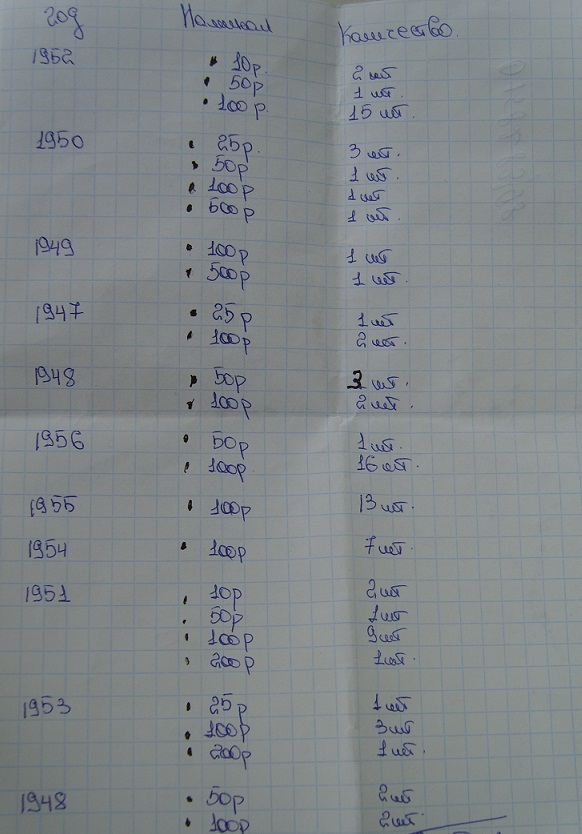 год Номинал Количество.
1952 • 10р. 2 шт
• 50р 1 шт.
• 100р. 15 шт.
1950 • 25р. 3 шт.
• 50р 1 шт.
• 100р 1 шт
• 500р 1 шт.
1949 • 100р 1 шт
• 500р 1 шт.
1947 • 25р 1 шт
• 100р 2 шт.
1948 • 50р 3 шт.
• 100р 2 шт.
1956 • 50р 1 шт.
• 100р. 16 шт.
1955 • 100р 13 шт.
1954 • 100р 7 шт.
1951 • 10р 2 шт
• 50р 1 шт
• 100р 9 шт
• 200р 1 шт.
1953 • 25р 1 шт
• 100р 3 шт
• 200р 1 шт.
1948 • 50р 2 шт
• 100р 2 шт.